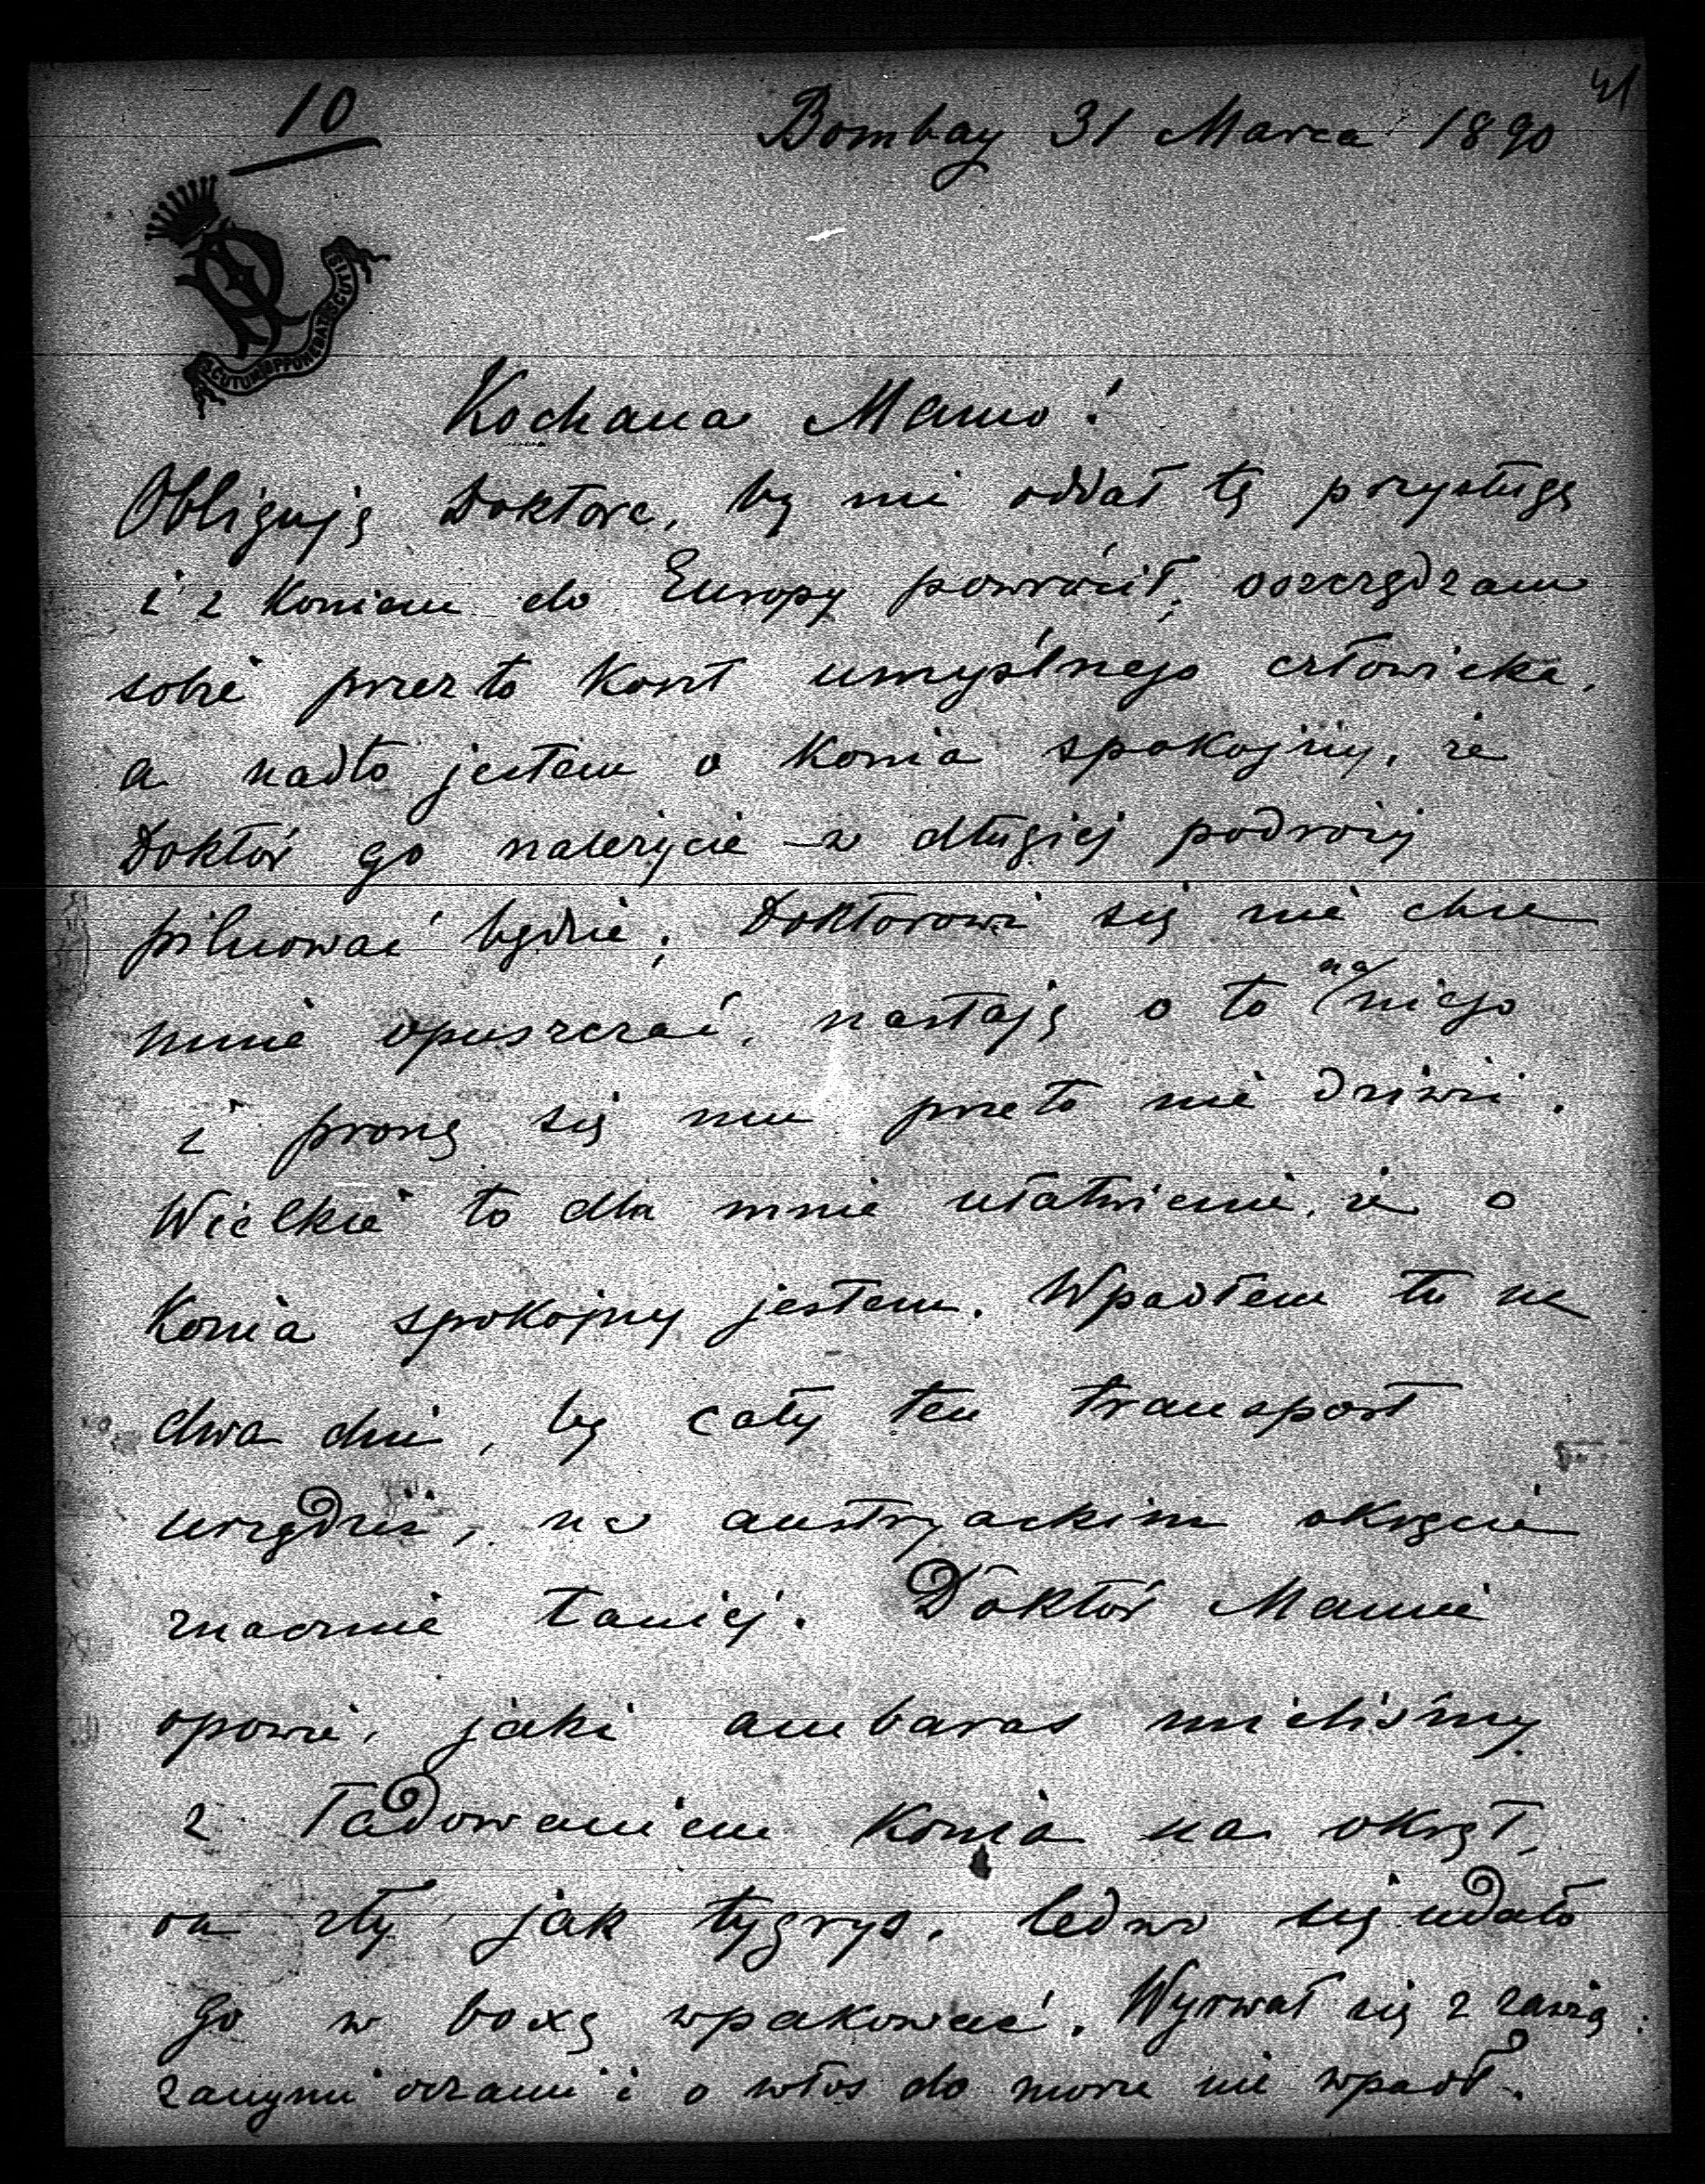 41
10
Bombay 31 Marca 1890
SCUTUM OPPONEBAT SCUTIS
Kochana Mamo!
Obliguję Doktora, by mi oddał tę przysługę
i z koniem do Europy powrócił; oszczędzam
sobie przez to koszt umyślnego człowieka,
a nadto jestem o konia spokojny, że
Doktór go należycie w długiej podroży
pilnować będzie; Doktorowi się nie chce
mnie opuszczać, nastaję o to na niego
i proszę się mu przeto nie dziwić.
Wielkie to dla mnie ułatwienie, że o
konia spokojny jestem. Wpadłem tu na
dwa dni, by cały ten transport
urządzić, na austryackim okręcie
znacznie taniej. Doktór Mamie
opowie, jaki ambaras mieliśmy
z ładowaniem konia na okręt,
on zły jak tygrys, ledwo się udało
go w boxę wpakować. Wyrwał się z zawią:
zanymi oczami i o włos do morza nie wpadł.